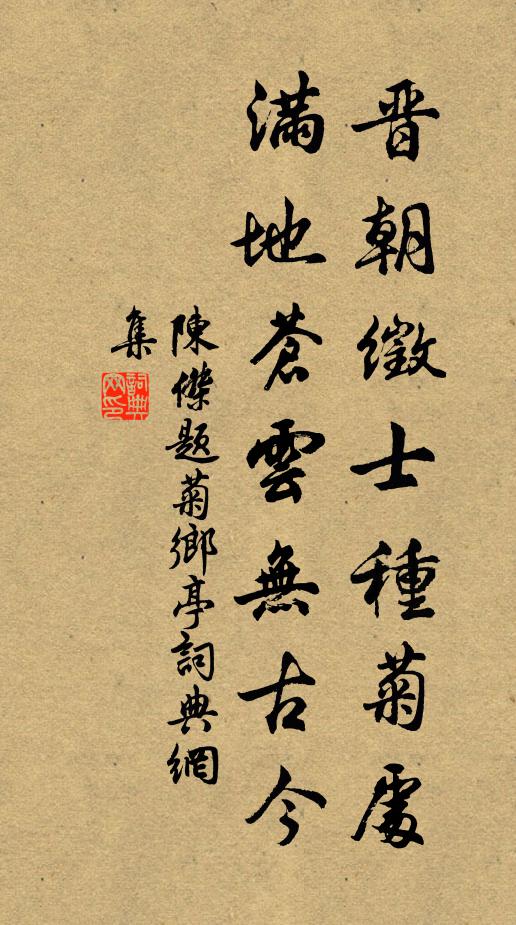 晋朝徵士種菊處
滿地蒼雲無古今
陳傑題菊鄉亭詞典網
集
詞典網印